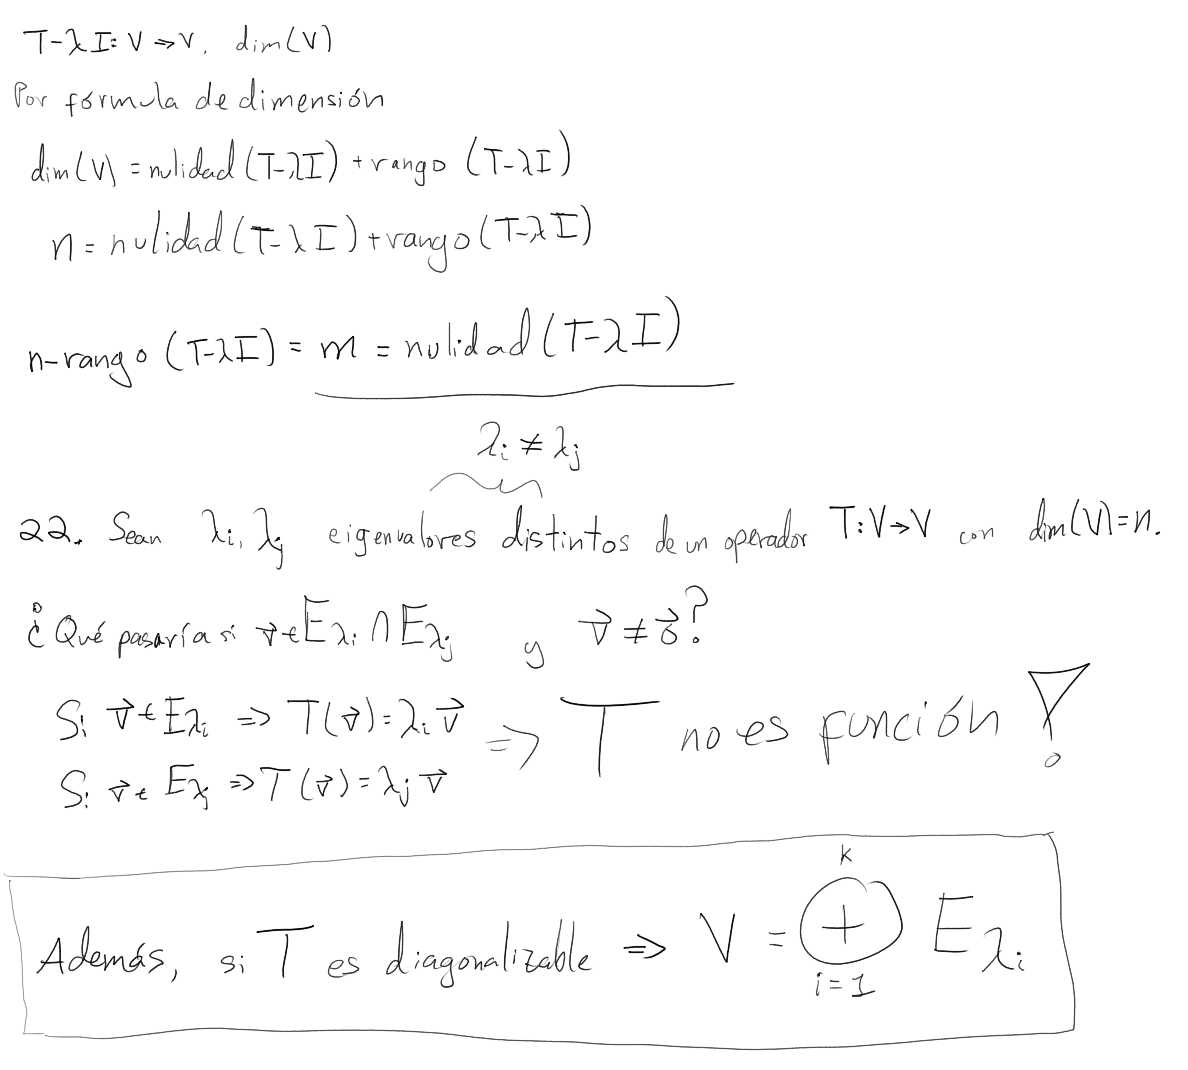 T-λI: V→V, dim(V)
Por fórmula de dimensión
dim(V) = nulidad(T-λI) + rango (T-λI)
n = nulidad(T-λI) + rango(T-λI)
n-rango(T-λI) = m = nulidad(T-λI)
λi ≠ λj
22. Sean λi, λj eigenvalores distintos de un operador T:V→V con dim(V)=n.
¿Qué pasaría si v⃗ ∈ Eλi ∩ Eλj y v⃗ ≠ 0⃗?
Si v⃗ ∈ Eλi ⇒ T(v⃗) = λi v⃗ ⇒ T no es función !
Si v⃗ ∈ Eλj ⇒ T(v⃗) = λj v⃗
k
Además, si T es diagonalizable ⇒ V = ⊕ Eλi
i=1